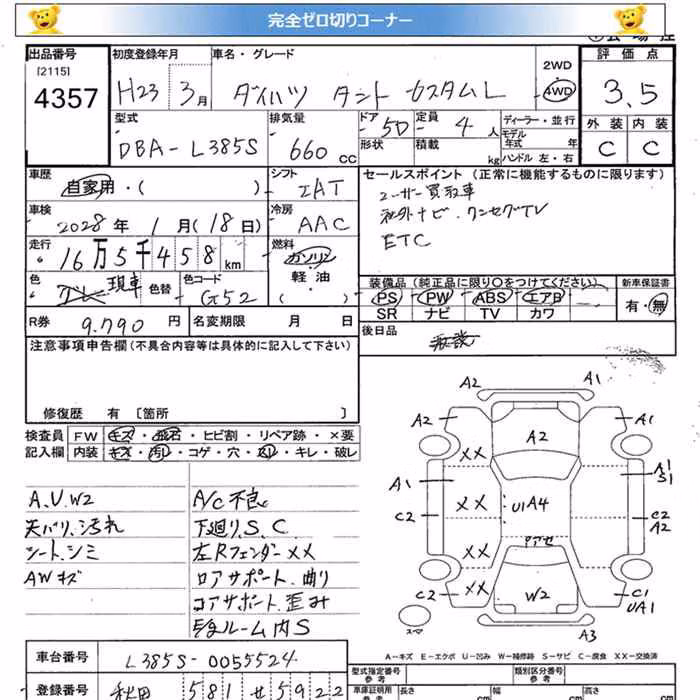 完全ゼロ切りコーナー
出品番号 初度登録年月 車名・グレード 2WD 評価点
[2115] 4357 H23 3月 ダイハツ タント カスタムL 4WD 3.5
型式 排気量 ドア 5D 定員 4人 ディーラー・並行 外装 内装
モデル年式 年
DBA-L385S 660cc 形状 積載 kg ハンドル 左・右 C C
車歴 シフト セールスポイント(正常に機能するものに限ります)
自家用・( ) IAT ユーザー買取車
車検 冷房 社外ナビ・ワンセグTV
2028年 1月(18日) AAC ETC
走行 燃料
16万5千458km ガソリン
軽油
・( )
色 現車 色替 色コード G52
装備品(純正品に限り○をつけてください) 新車保証書
PS PW ABS エアB 有・無
SR ナビ TV カワ
R券 9.790円 名変期限 月 日 後日品
注意事項申告欄(不具合内容等は具体的に記入して下さい)
修復歴 有 [箇所 ]
検査員 FW キズ・飛石・ヒビ割・リペア跡・×要
記入欄 内装 キズ・汚れ・コゲ・穴・・キレ・破レ
A.U.W2
天バリ、汚れ
シート、シミ
AWキズ
A/C不良
下廻りS.C
左Rフェンダー××
ロアサポート、曲り
コアサポート歪み
ルーム内S
A2 A1
A2 A2 A1
××
A1 A1 S1
×× U1 A4
C2 C2 A2
×× アセ
×× W2 C1
C2 UA1
スペ A3
A-キズ E-エクボ U-凹み W-補修跡 S-サビ C-腐食 XX-交換済
車台番号 L385S-0055524
型式指定番号 参考 類別区分番号 参考
登録番号 秋田 581 せ 5922
車庫証明用 参考 長さ cm 幅 cm 高さ cm